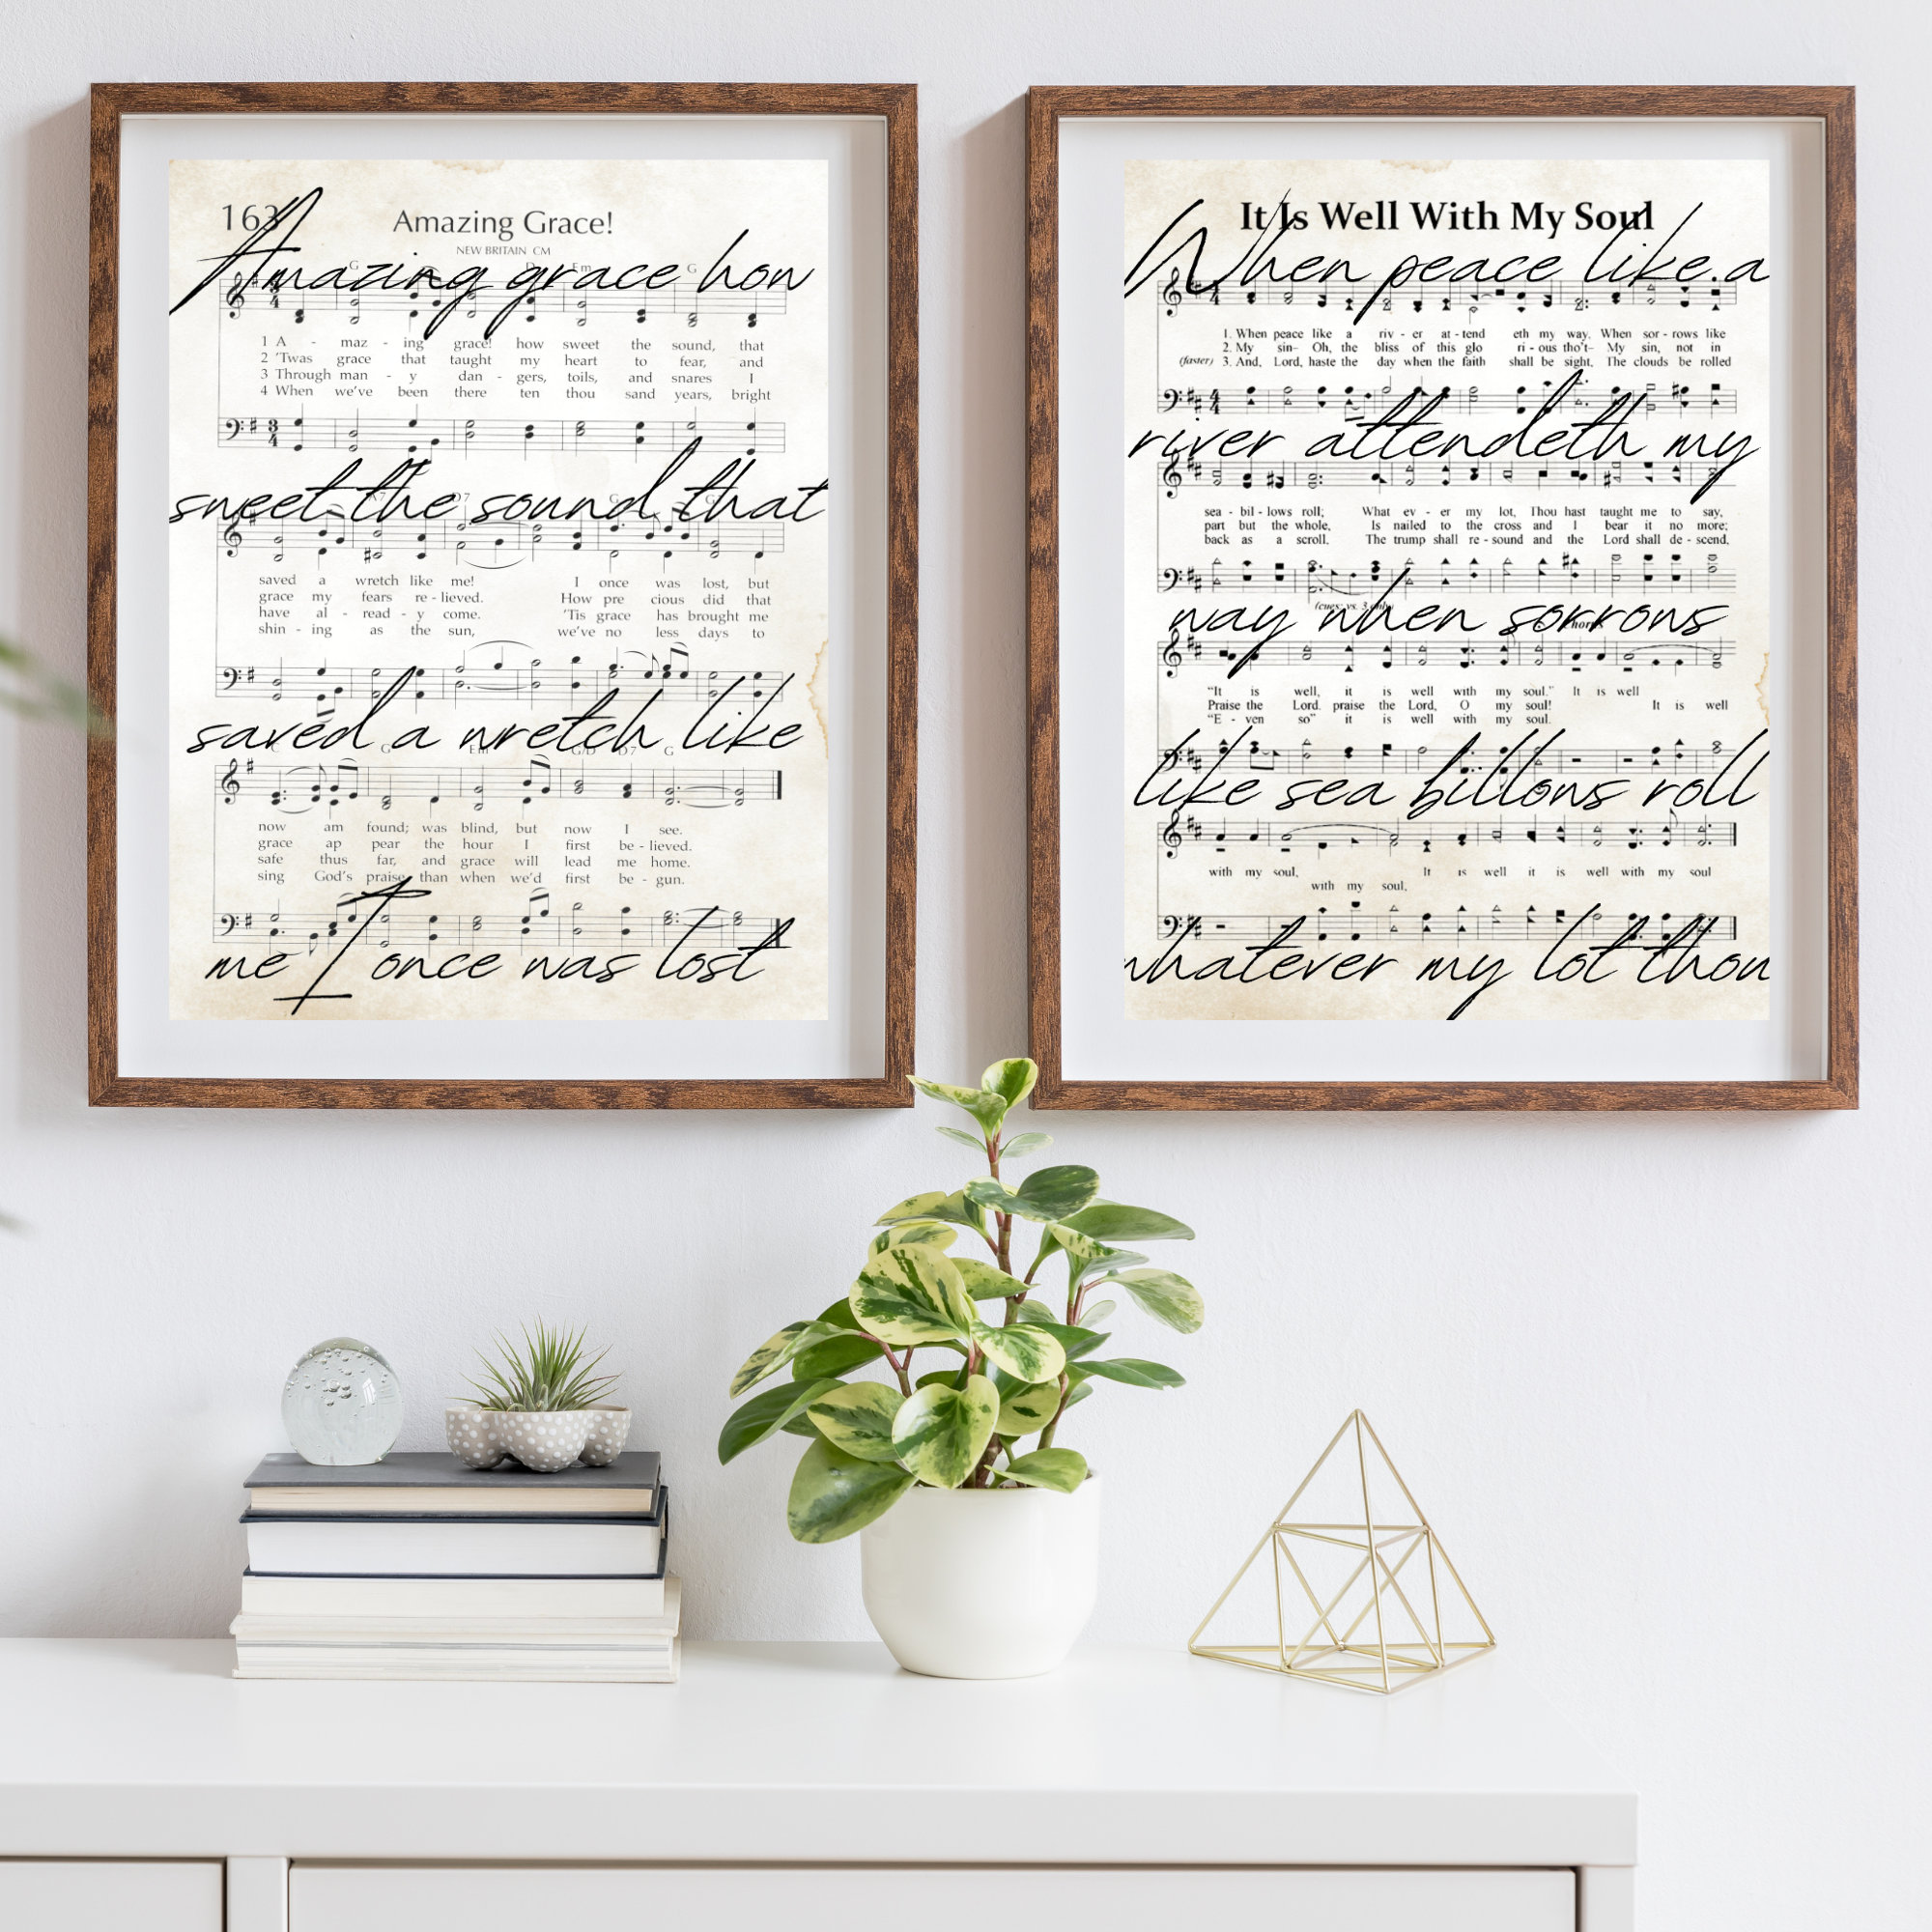 163
Amazing Grace!
NEW BRITAIN CM
Amazing grace how
G Em G
1 A - maz - ing grace! how sweet the sound, that
2 'Twas grace that taught my heart to fear, and
3 Through man - y dan - gers, toils, and snares I
4 When we've been there ten thou sand years, bright
sweet the sound that
saved a wretch like me! I once was lost, but
grace my fears re - lieved. How pre cious did that
have al - read - y come. 'Tis grace has brought me
shin - ing as the sun, we've no less days to
saved a wretch like
now am found; was blind, but now I see.
grace ap pear the hour I first be - lieved.
safe thus far, and grace will lead me home.
sing God's praise than when we'd first be - gun.
me I once was lost
It Is Well With My Soul
When peace like a
1. When peace like a riv - er at - tend eth my way, When sor - rows like
2. My sin- Oh, the bliss of this glo ri - ous tho't- My sin, not in
(faster) 3. And, Lord, haste the day when the faith shall be sight, The clouds be rolled
river attendeth my
sea - bil - lows roll; What ev - er my lot, Thou hast taught me to say,
part but the whole, Is nailed to the cross and I bear it no more;
back as a scroll, The trump shall re - sound and the Lord shall de - scend,
(cues: vs. 3 only)
way when sorrows
"It is well, it is well with my soul." It is well
Praise the Lord. praise the Lord, O my soul! It is well
"E - ven so" it is well with my soul.
like sea billows roll
with my soul, It is well it is well with my soul
with my soul,
whatever my lot thou